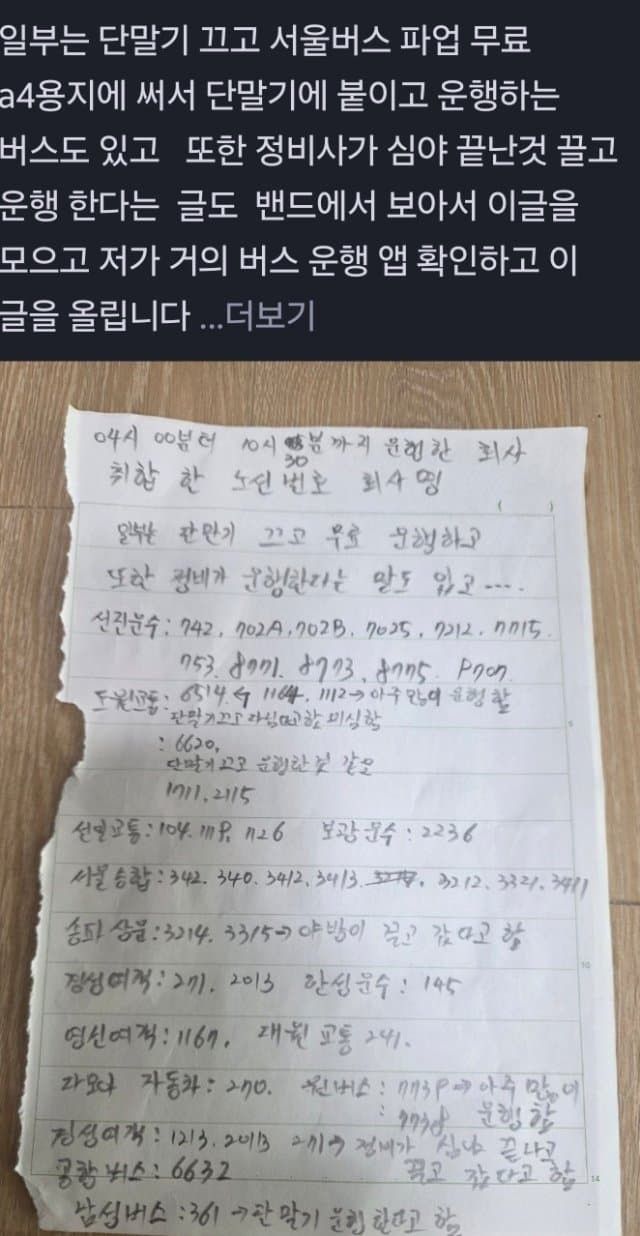 일부는 단말기 끄고 서울버스 파업 무료
a4용지에 써서 단말기에 붙이고 운행하는
버스도 있고 또한 정비사가 심야 끝난것 끌고
운행 한다는 글도 밴드에서 보아서 이글을
모으고 저가 거의 버스 운행 앱 확인하고 이
글을 올립니다 ...더보기
04시 00분부터 10시 분까지 운행한 회사
30
취합 한 노선번호 회사명
일부는 단말기 끄고 무료 운행하고
또한 정비가 운행한다는 말도 있고....
선진운수: 742, 702A, 702B, 7025, 7212, 7715.
753. 8771. 8773. 8775. P707.
도원교통: 6514. 1164, 1112→아주 많이 운행 함
단말기끄고
: 6620,
단말기 끄고 운행한 것 같음
1711, 2115
선일교통: 104. 1118, 1126 보광운수: 2236
서울승합: 342. 340. 3412. 3413. 3212. 3321. 3411
송파상운: 3214. 3315→ 끌고 갔다고 함
경성여객: 271, 2013 한성운수: 145
영신여객: 1167, 대원교통 241.
다모아 자동차: 270. 원버스: 773P→아주 많이
: 7738 운행함
경성여객: 1213. 2013 271→ 정비가 심야 끝나고
공항버스: 6632 끌고 갔다고 함
남성버스: 361→단말기 운행한다고 함